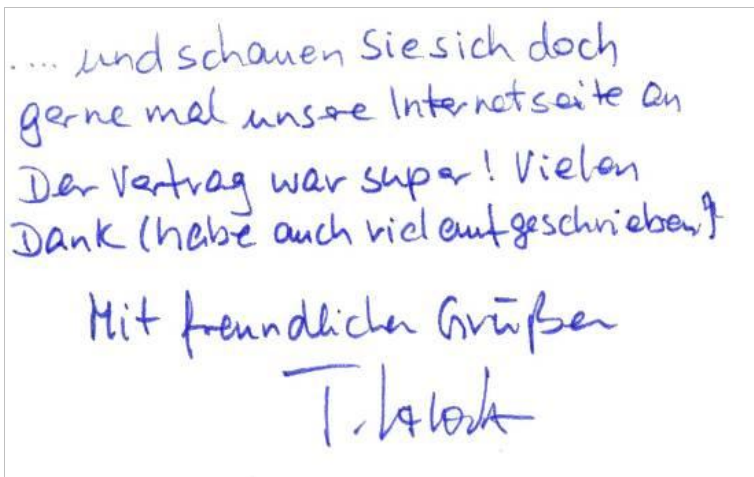 .... und schauen Sie sich doch
gerne mal unsre Internetseite an
Der Vortrag war super! Vielen
Dank (habe auch viel aufgeschrieben)
Mit freundlichen Grüßen
T.